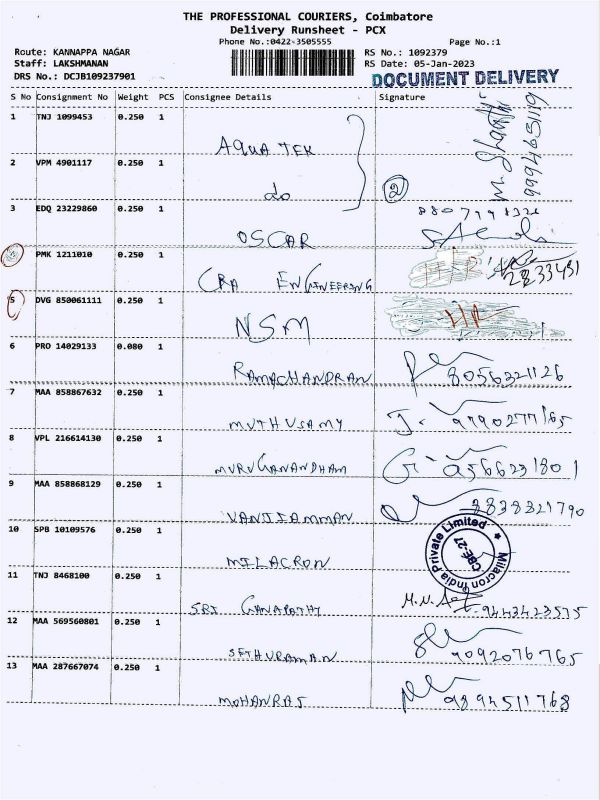 THE PROFESSIONAL COURIERS, Coimbatore
Delivery Runsheet - PCX
Phone No.:0422-3505555
Page No.:1
Route: KANNAPPA NAGAR
RS No.: 1092379
Staff: LAKSHMANAN
RS Date: 05-Jan-2023
DRS No.: DCJB109237901
DOCUMENT DELIVERY
S No Consignment No Weight PCS Consignee Details Signature
1 TNJ 1099453 0.250 1 AQUA TEK M. Shanthi 9994651119
2 VPM 4901117 0.250 1 do 2
3 EDQ 23229860 0.250 1 OSCAR
PMK 1211010 0.250 1 CRA ENGINEERING 2833451
5 DVG 850061111 0.250 1 NSM
6 PRO 14029133 0.080 1 RAMACHANDRAN 8056321126
7 MAA 858867632 0.250 1 MUTHUSAMY 9790277165
8 VPL 216614130 0.250 1 MURUGANANDHAM 9566231801
9 MAA 858868129 0.250 1 VANJIAMMAN 8838321790
10 SPB 10109576 0.250 1 MILACRON Milacron India Private Limited CBE-27
11 TNJ 8468100 0.250 1 SRI GANAPATHY 9443423575
12 MAA 569560801 0.250 1 SETHURAMAN 9092076765
13 MAA 287667074 0.250 1 MOHANRAJ 9894511768